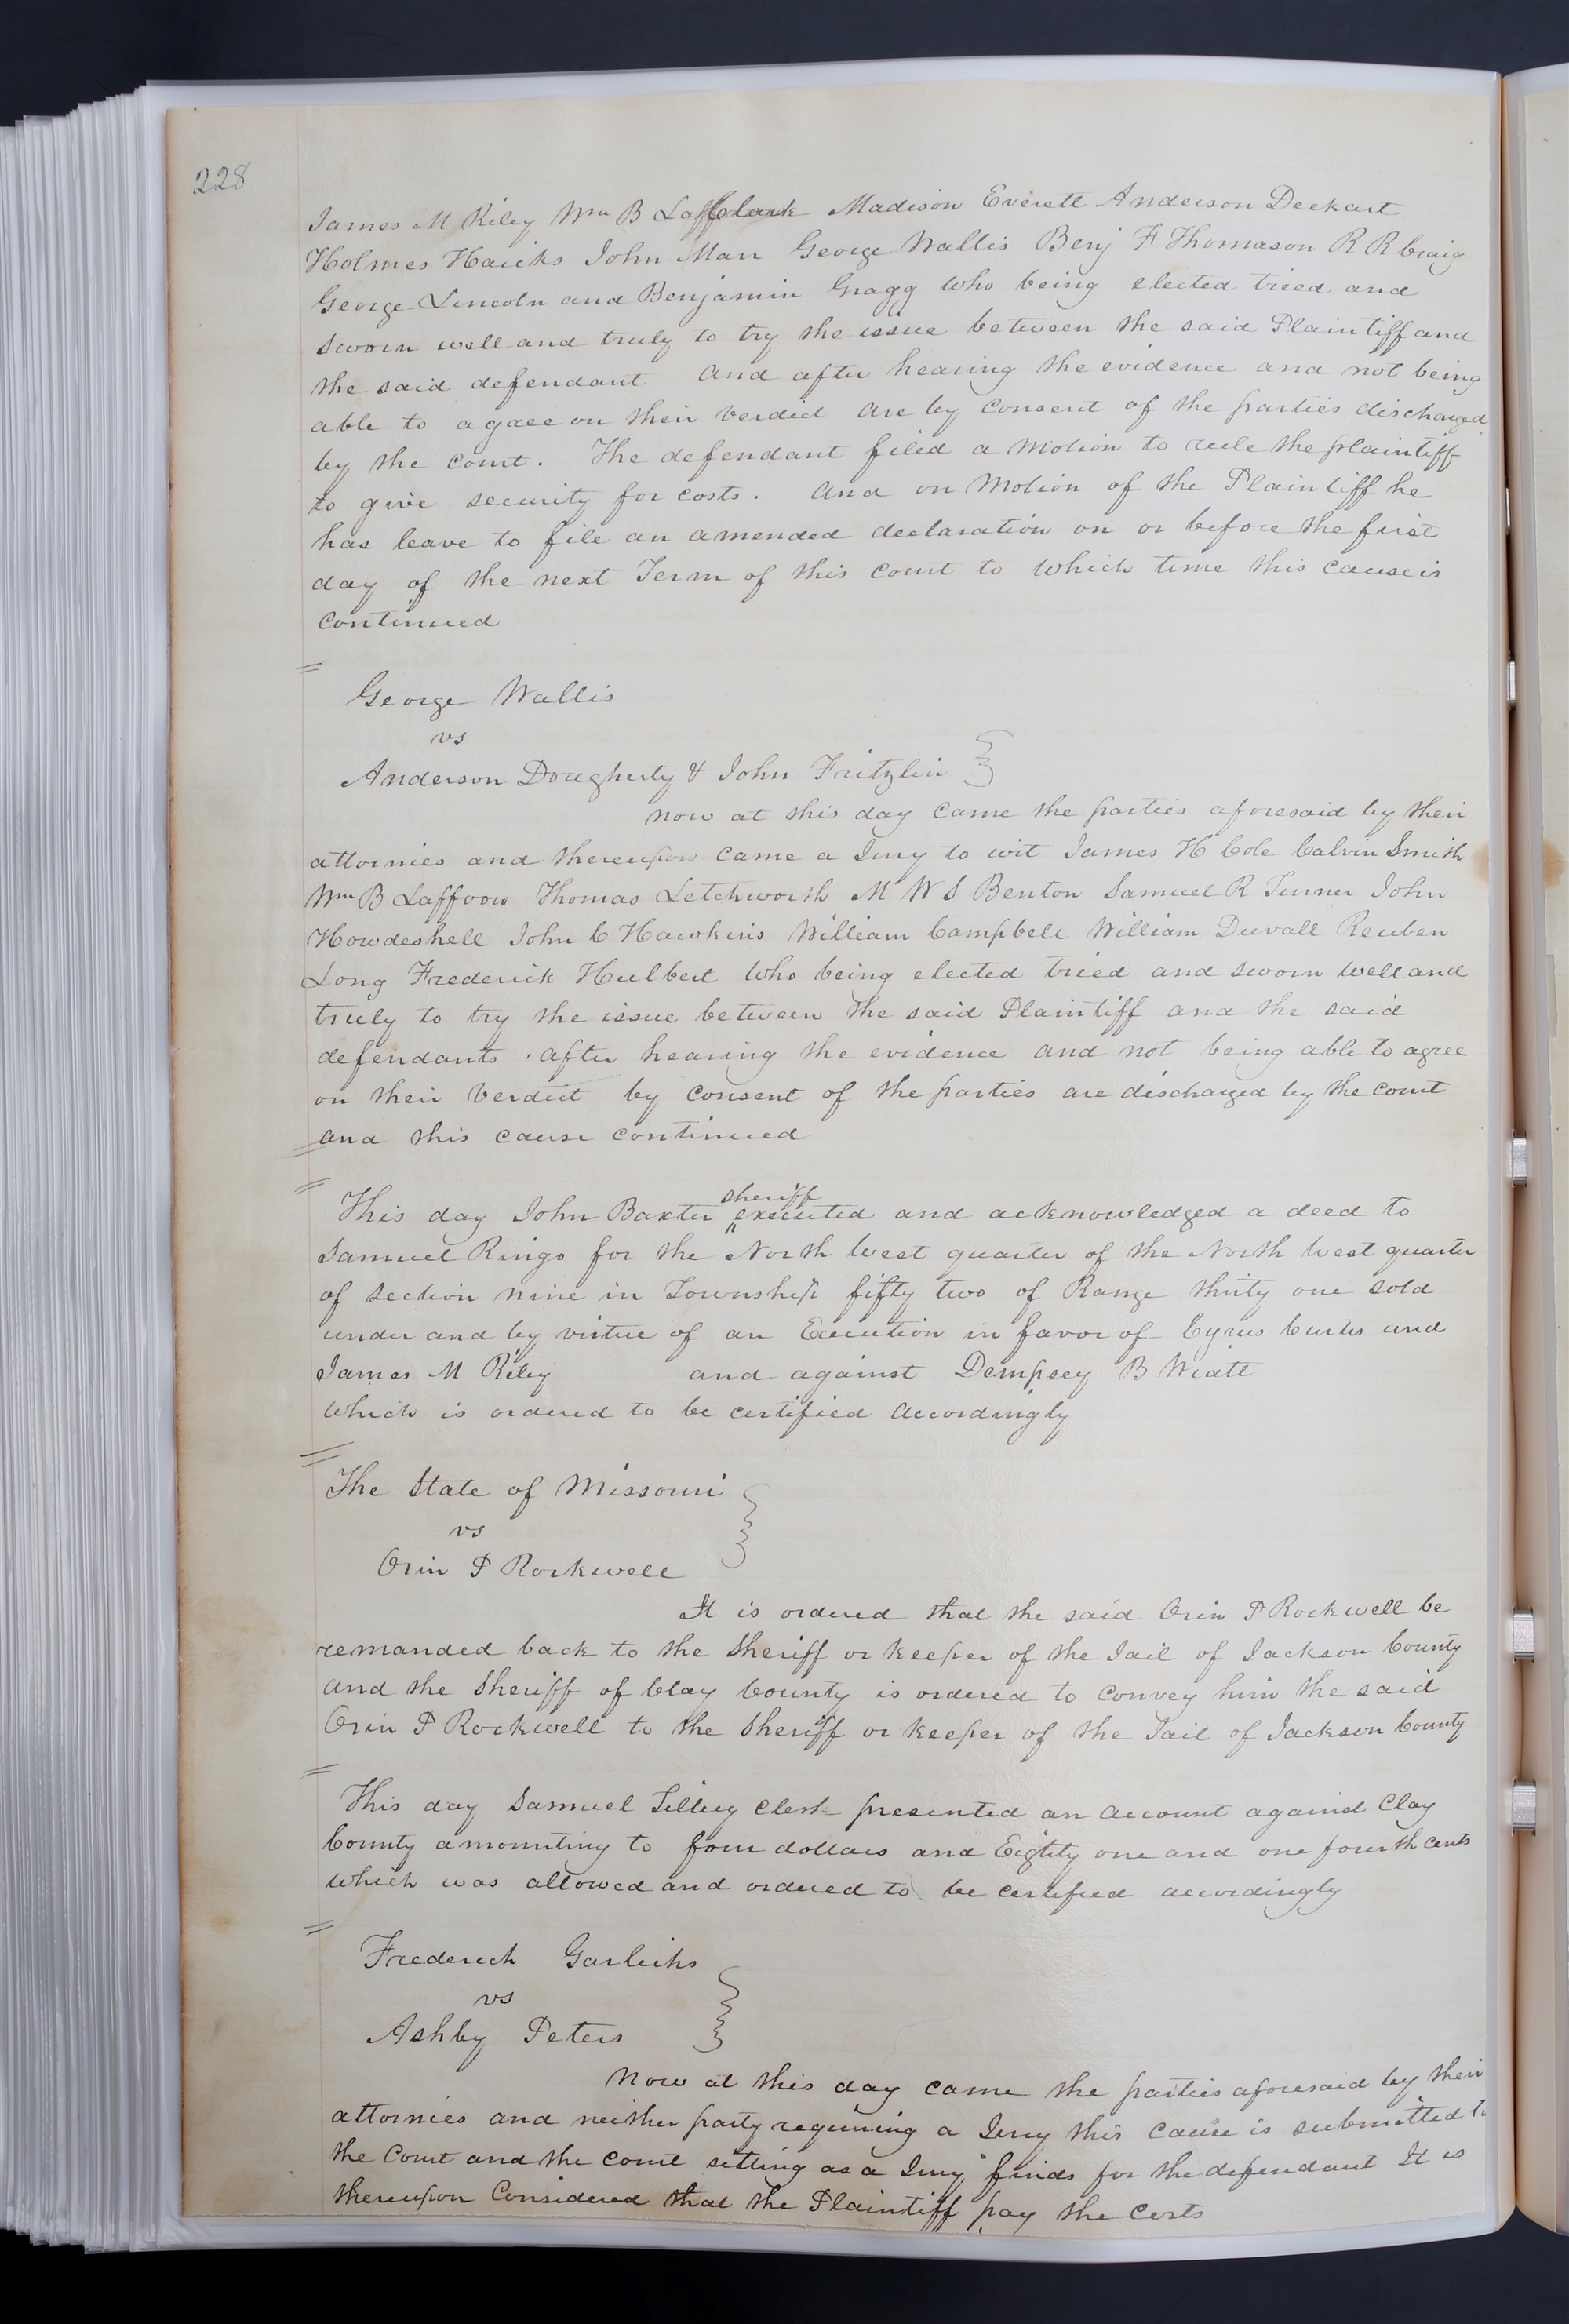 228
James M Riley Wm B Laff Clark Madison Everett Anderson Deckart
Holmes Haicks John Man George Wallis Benj F Thomason R R Craig
George Lincoln and Benjamin Gragg who being elected tried and
sworn well and truly to try the issue between the said Plaintiff and
the said defendant and after hearing the evidence and not being
able to agree on their verdict are by consent of the parties discharged
by the court. The defendant filed a motion to rule the plaintiff
to give security for costs. And on motion of the Plaintiff he
has leave to file an amended declaration on or before the first
day of the next Term of this court to which time this cause is
continued
George Wallis
vs
Anderson Dougherty & John Fritzlin
Now at this day came the parties aforesaid by their
attornies and thereupon came a Jury to wit James H Cole Calvin Smith
Wm B Laffoow Thomas Letchworth M W S Benton Samuel R Turner John
Howdeshell John C Hawkins William Campbell William Duvall Reuben
Long Frederick Hulbert who being elected tried and sworn well and
truly to try the issue between the said Plaintiff and the said
defendants, after hearing the evidence and not being able to agree
on their verdict by consent of the parties are discharged by the court
and this cause continued
sheriff
This day John Baxter executed and acknowledged a deed to
Samuel Ringo for the North West quarter of the North West quarter
of Section nine in Township fifty two of Range thirty one sold
under and by virtue of an Execution in favor of Cyrus Curtis and
James M Riley and against Dempsey B Wiatt
which is ordered to be certified accordingly
The State of Missouri
vs
Orin P Rockwell
It is ordered that the said Orin P Rockwell be
remanded back to the Sheriff or keeper of the Jail of Jackson County
and the Sheriff of Clay County is ordered to convey him the said
Orin P Rockwell to the Sheriff or keeper of the Jail of Jackson County
This day Samuel Tillery Clerk presented an account against Clay
County amounting to four dollars and Eighty one and one fourth cents
which was allowed and ordered to be certified accordingly
Frederick Garlichs
vs
Ashby Peters
Now at this day came the parties aforesaid by their
attornies and neither party requiring a Jury this cause is submitted to
the Court and the court setting as a Jury finds for the defendant It is
thereupon Considered that the Plaintiff pay the costs